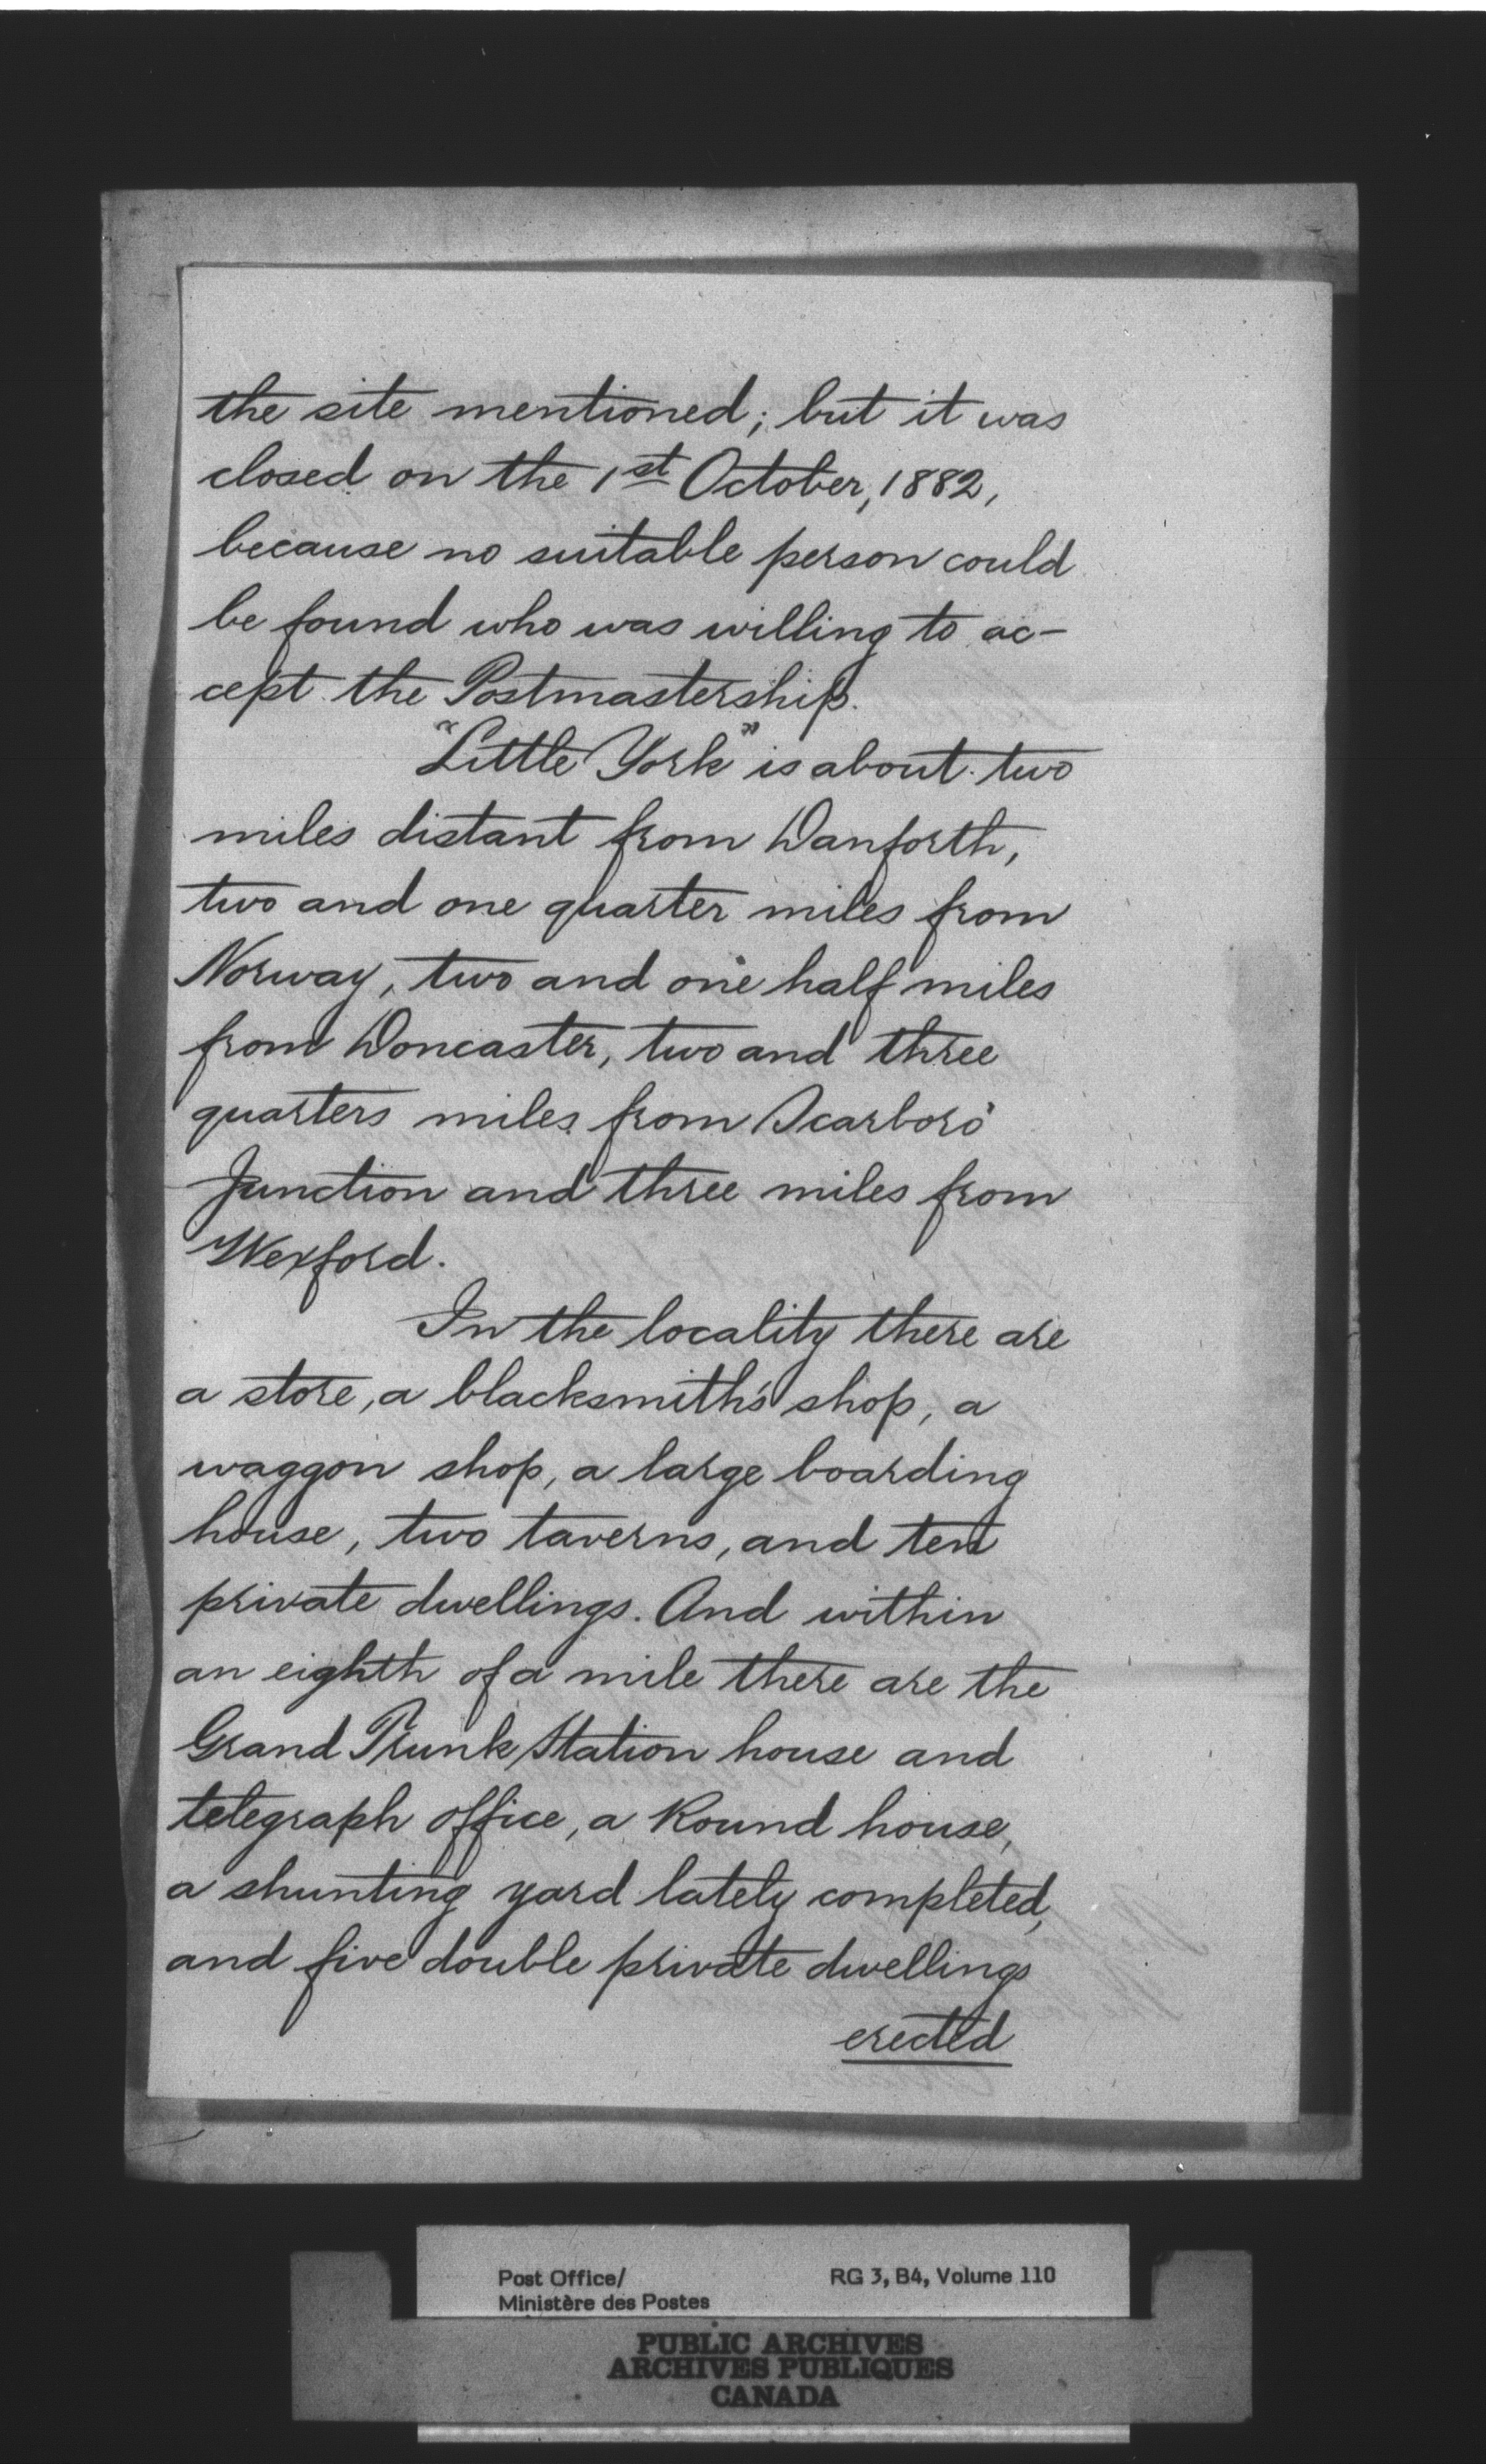 the site mentioned; but it was
closed on the 1st October, 1882,
because no suitable person could
be found who was willing to ac-
cept the Postmastership.
"Little York" is about two
miles distant from Danforth,
two and one quarter miles from
Norway, two and one half miles
from Doncaster, two and three
quarters miles from Scarboro'
Junction and three miles from
Wexford.
In the locality there are
a store, a blacksmith's shop, a
waggon shop, a large boarding
house, two taverns, and ten
private dwellings. And within
an eighth of a mile there are the
Grand Trunk Station house and
telegraph office, a Round house,
a shunting yard lately completed,
and five double private dwellings
erected
Post Office/ RG 3, B4, Volume 110
Ministère des Postes
PUBLIC ARCHIVES
ARCHIVES PUBLIQUES
CANADA